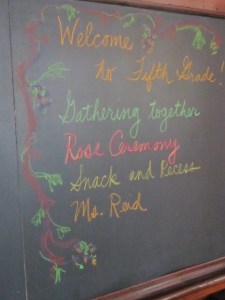 Welcome
to Fifth Grade!
Gathering together
Rose Ceremony
Snack and Recess
Ms. Reid